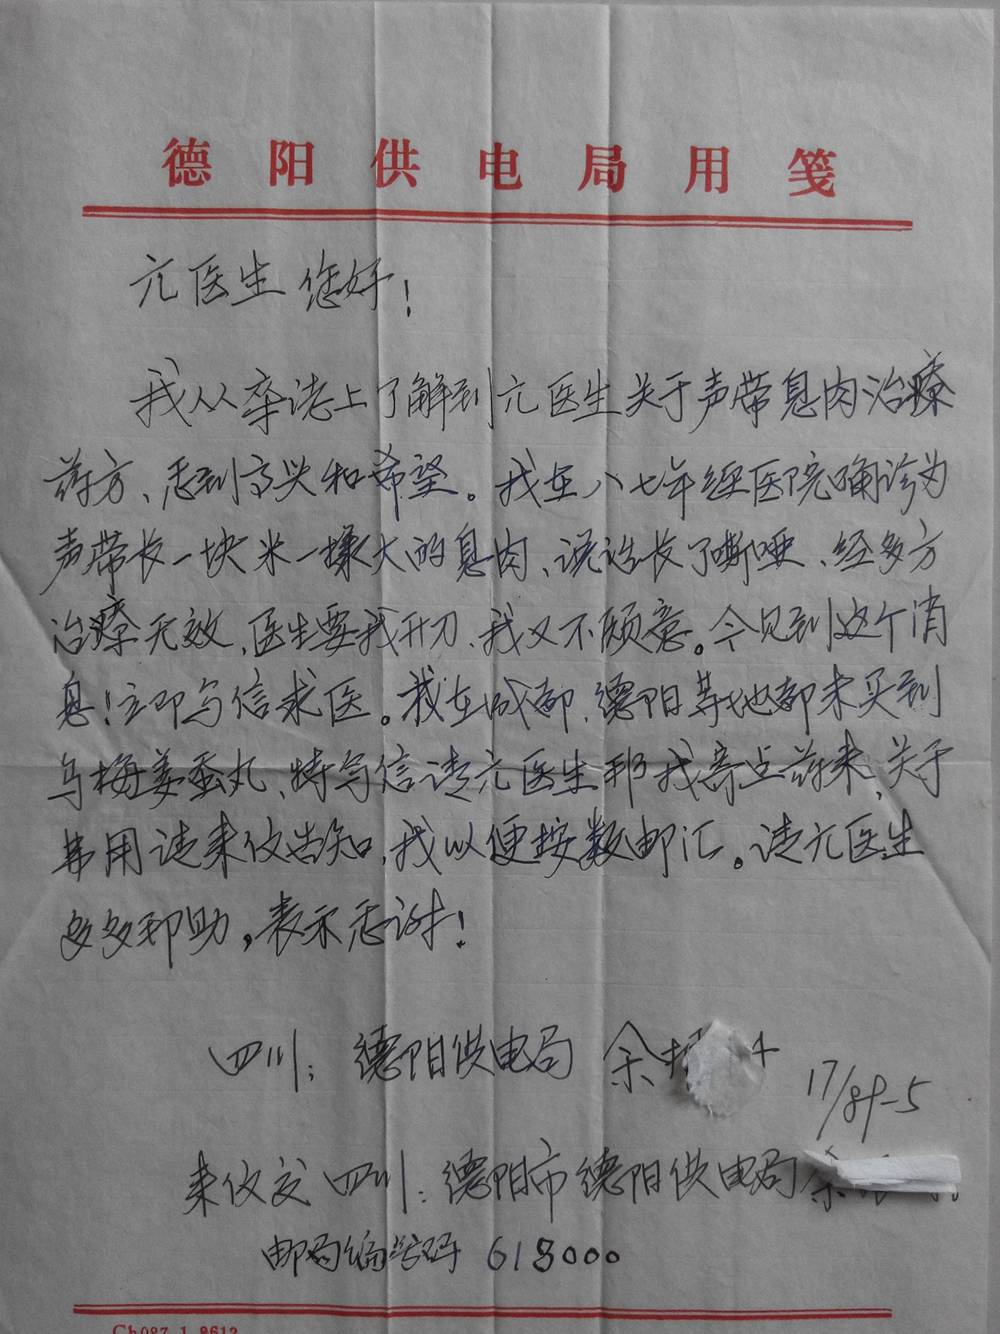 德阳供电局用笺
亢医生 您好!
我从杂志上了解到亢医生关于声带息肉治療
药方、感到高兴和希望。我在八七年经医院确诊为
声带长一块米一様大的息肉、说话长了嘶哑、经多方
治療无效、医生要我开刀、我又不愿意。今见到这个消
息!立即写信求医。我在成都、德阳等地都未买到
乌梅姜蚕丸、特写信请亢医生帮我寄点药来、关于
费用请来仪告知,我以便按数邮汇。请亢医生
多多帮助,表示感谢!
四川: 德阳供电局 余
17/89-5
来仪交 四川: 德阳市德阳供电局余
邮局编码 618000
Ch087.1.8612